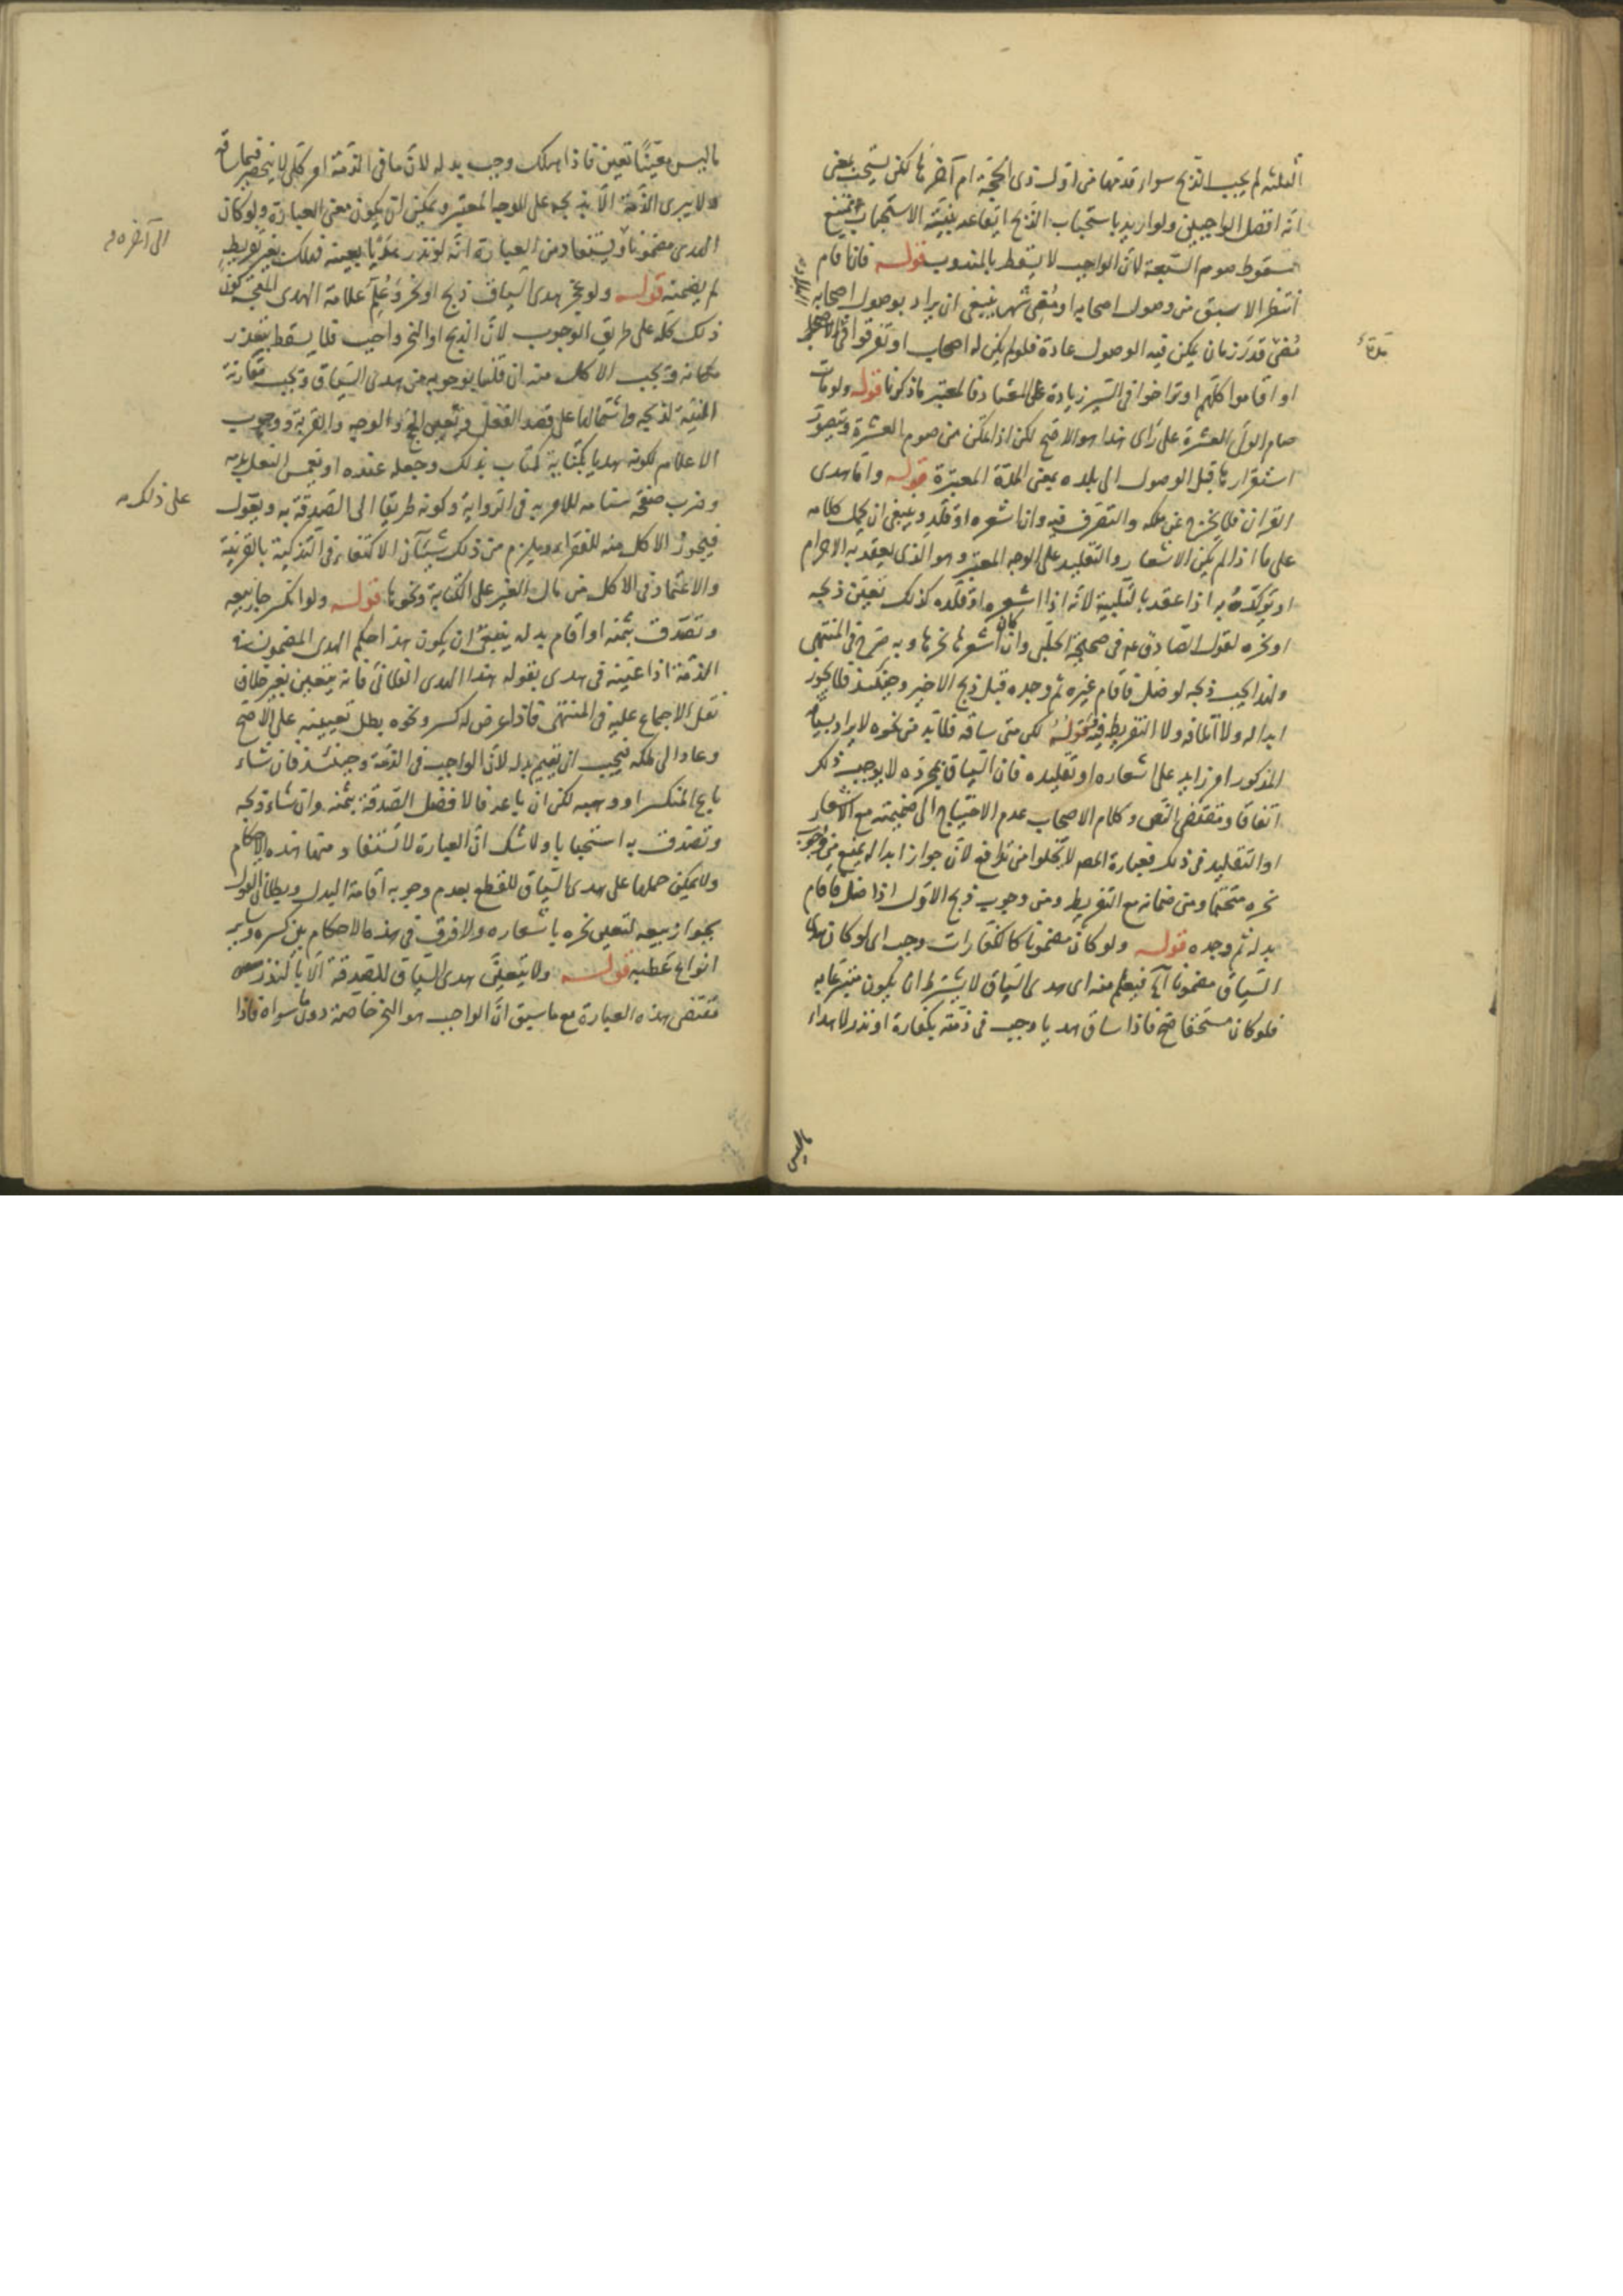 الثلثة لم يجب الذبح سواء قدمها من اول ذى الحجة ام آخرها لكن يستحب بمعنى
انه افضل الواجبين ولو اريد باستحباب الذبح ايقاعه بنية الاستحباب امتنع
سقوط صوم السبعة لان الواجب لا يسقط بالمندوب قوله فان اقام
انتظر الاسبق من وصول اصحابه او مضى شهر ينبغى ان يراد بوصول اصحابه
مضى قدر زمان يمكن فيه الوصول عادة فلو لم يكن له اصحاب او تفرقوا
مدة
او اقاموا كلهم او تراخوا فى السير زيادة على المعتاد فالمعتبر ما ذكرنا قوله ولو مات
صام الولى العشرة على راى هذا هو الاصح لكن اذا تمكن من صوم العشرة ويتصور
استقرارها قبل الوصول الى بلده بمضى المدة المعتبرة قوله واما هدى
القران فلا يخرج عن ملكه والتصرف فيه وان اشعره او قلده وينبغى ان يحمل كلامه
على ما اذا لم يكن الاشعار والتقليد على الوجه المعتبر وهو الذى يعقد به الاحرام
او يؤكده به اذا عقد بالتلبية لانه اذا اشعره او قلده كذلك تعين ذبحه
او نحره لقول الصادق عم فى صحيحة الحلبى وان كان اشعرها نحرها وبه صرح فى المنتهى
ولهذا يجب ذبحه لو ضل فاقام غيره ثم وجده قبل ذبح الاخير وحينئذ فلا يجوز
ابداله ولا اتلافه ولا التفريط فيه قوله لكن متى ساقه فلا بد من نحره لا يراد بسياقه
المذكور امر زايد على اشعاره او تقليده فان السياق بمجرده لا يوجب ذلك
اتفاقا ومقتضى النص وكلام الاصحاب عدم الاحتياج الى ضميمته مع الاشعار
او التقليد فى ذلك فعبارة المص لا تخلوا من تدافع لان جواز ابداله يمنع من وجوب
نحره متحتما ومن ضمانه مع التفريط ومن وجوب ذبح الاول اذا ضل فاقام
بدله ثم وجده قوله ولو كان مضمونا كالكفارات وجب اى لو كان هدى
السياق مضمونا فيعلم منه اى هدى السياق لا يشترط ان يكون متبرعا به
فلو كان مستحقا صح فاذا ساق هديا وجب فى ذمته بكفارة او نذر لاهداء
ماليس
ما ليس معينا تعين فاذا هلك وجب بدله لان ما فى الذمة امر كلى لا ينحصر فيما ساقه
ولا يبرى الذمة الا بذبحه على الوجه المعتبر ويمكن ان يكون معنى العبارة ولو كان
الى آخره
الهدى مضمونا ويستفاد من العبارة انه لو نذر هديا بعينه فهلك بغير تفريط
لم يضمنه قوله ولو عجز هدى السياق ذبح او نحر وعلم علامة الهدى
ذلك كله على طريق الوجوب لان الذبح او النحر واجب فلا يسقط بتعذر
مكانه ويجب الاكل منه ان قلنا بوجوبه من هدى السياق ويجب مقارنة
النية لذبحه واشتمالها على قصد الفعل وتعيين الحج والوجه والقربة ووجوب
الاعلام لكونه هديا بكتابة كتاب بذلك وجعله عنده او بغمس النعل بدمه
وضرب صفحة سنامه للامر به فى الرواية وكونه طريقا الى الصدقة به ويعول
على ذلك
فيجوز الاكل منه للفقراء ويلزم من ذلك شيئآن الاكتفاء فى التذكية بالقرينة
والاعتماد فى الاكل من مال الغير على الكتابة ونحوها قوله ولو انكسر جاز بيعه
وتصدق بثمنه او اقام بدله ينبغى ان يكون هذا حكم الهدى المضمون فى
الذمة اذا عينه فى هدى بقوله هذا الهدى الفلانى فانه يتعين بغير خلاف
نقل الاجماع عليه فى المنتهى فاذا عرض له كسر ونحوه بطل تعيينه على الاصح
وعاد الى ملكه فيجب ان يقيم بدله لان الواجب فى الذمة وحينئذ فان شاء
باع المنكسر او وهبه لكن ان باعه فالافضل الصدقة بثمنه وان شاء ذبحه
وتصدق به استحبابا ولا شك ان العبارة لا تستفاد منها هذه الاحكام
ولا يمكن حملها على هدى السياق للقطع بعدم وجوب اقامة البدل وبطلان القول
بجواز بيعه لتعين نحره باشعاره ولا فرق فى هذه الاحكام بين كسره وساير
انواع عطبه قوله ولا يتعين هدى السياق للصدقة الا بالنذر
مقتضى هذه العبارة مع ما سبق ان الواجب هو النحر خاصة دون ما سواه فاذا